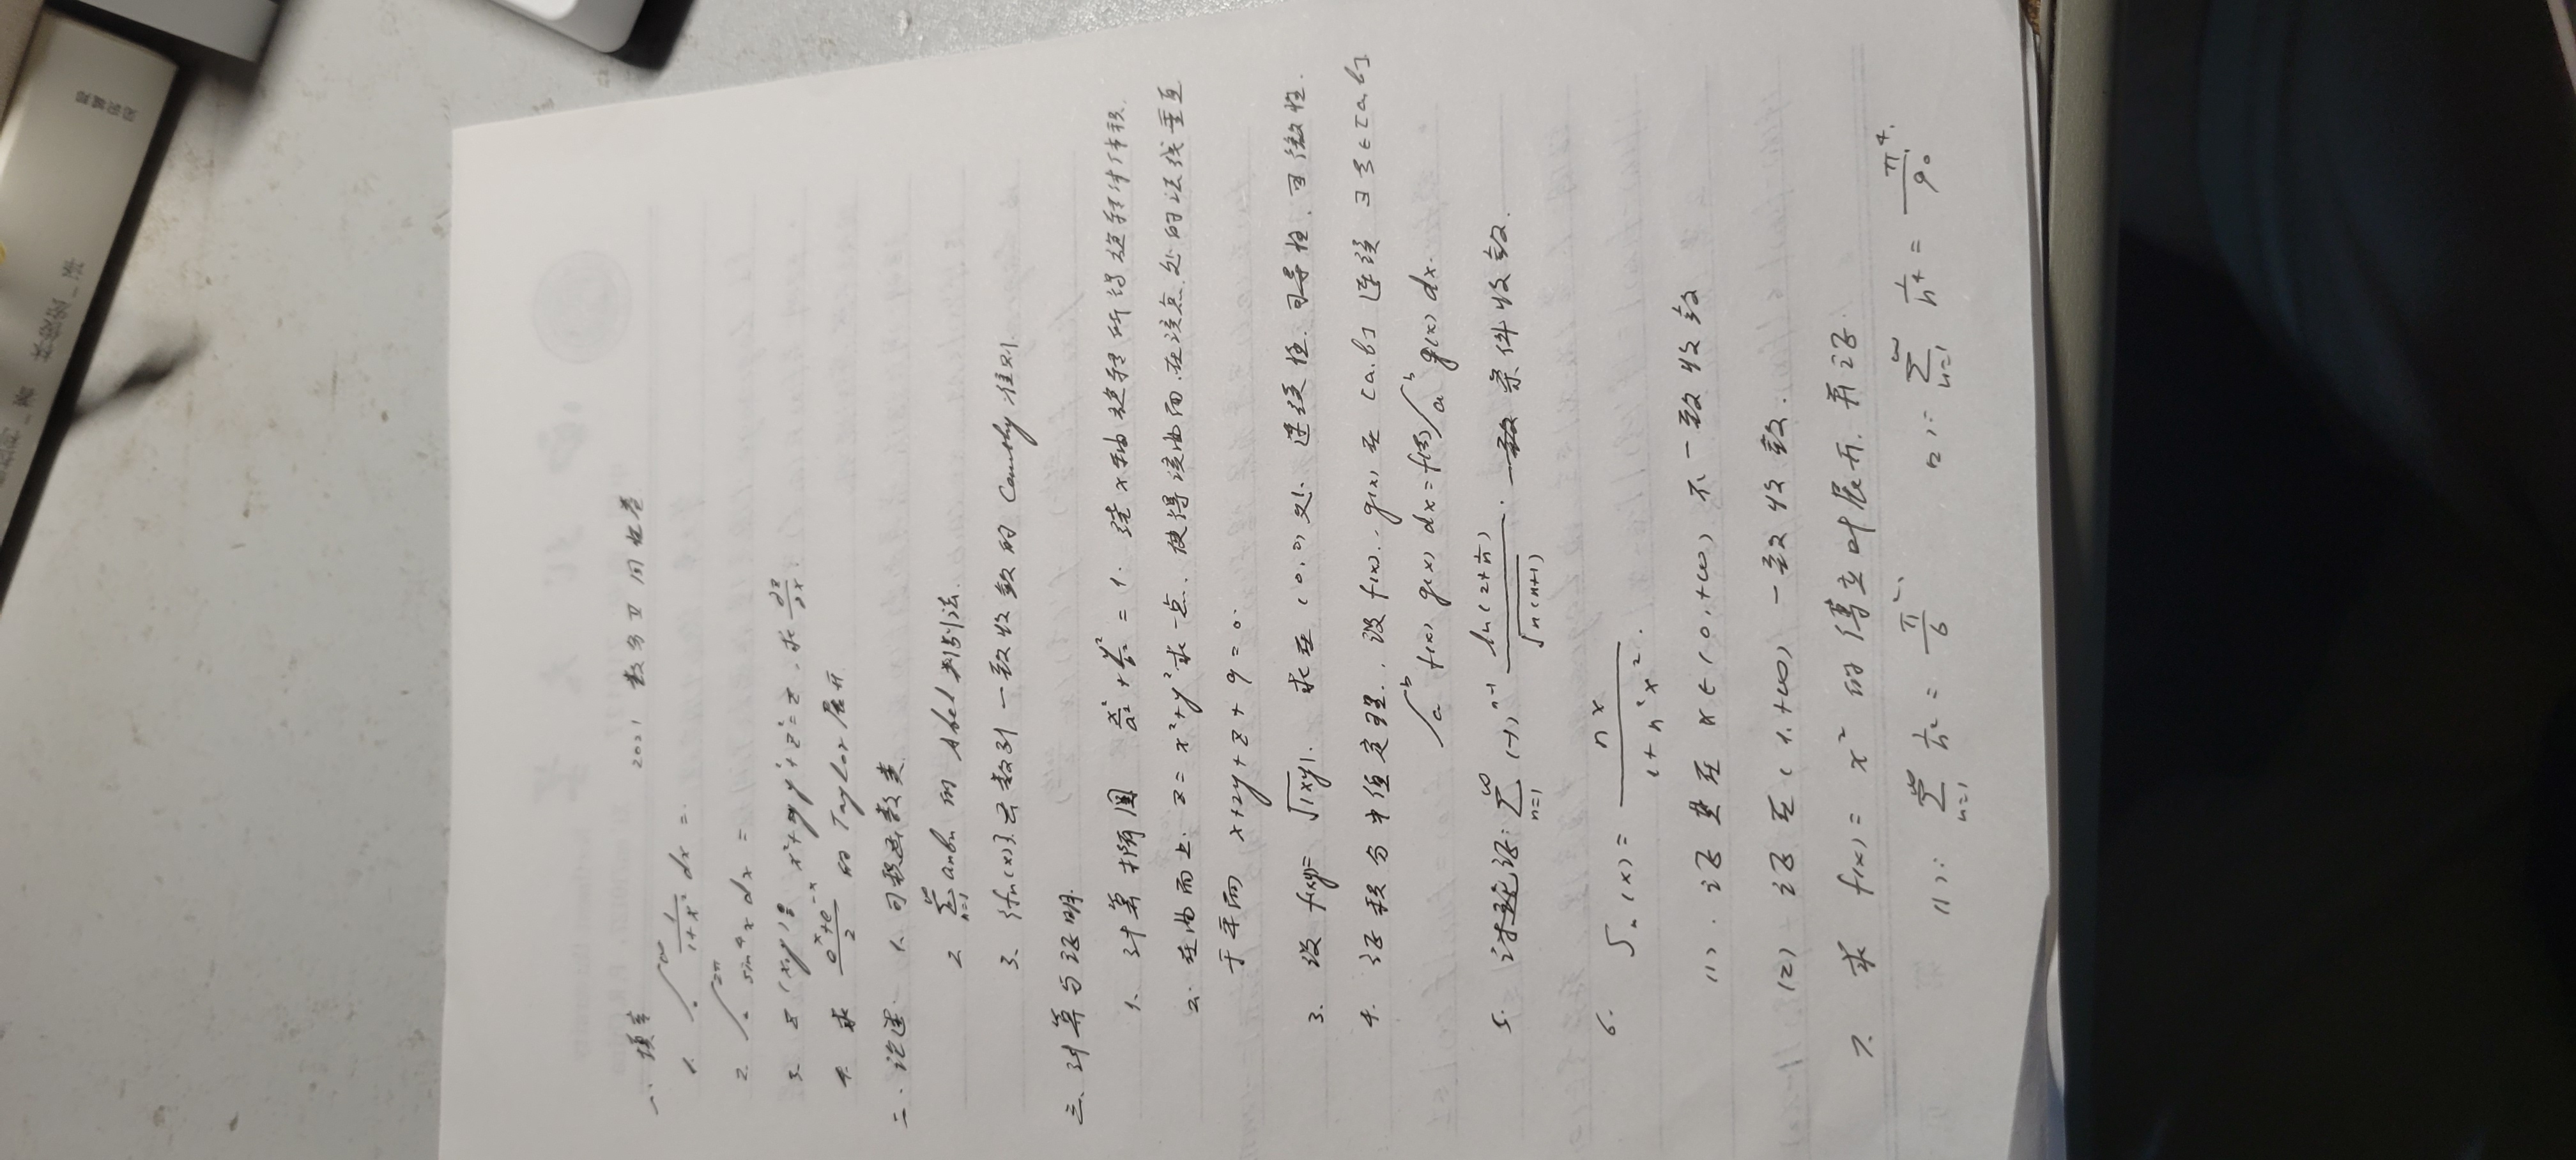 著 林俊宏 译
2021 数分Ⅱ回忆卷
一、填空
1. ∫₀^∞ 1/(1+x²) dx =.
2. ∫₀^2π sin⁴x dx =
3. z(x,y): x²+y²+z²=z. 求 ∂z/∂x.
4. 求 (eˣ+e⁻ˣ)/2 的 Taylor 展开.
二、论述 1. 可积函数类
2. ∑_{n=1}^∞ anbn 的 Abel 判别法.
3. {fn(x)}函数列一致收敛的 Cauchy 准则.
三、计算与证明
1. 计算椭圆 x²/a² + y²/b² = 1. 绕 x 轴旋转所得旋转体体积.
2. 在曲面上. z = x²+y² 求一点. 使得该曲面在该点处的法线垂直
于平面 x+2y+z+9=0.
3. 设 f(xy)= √|xy|. 求在(0,0)处. 连续性. 可导性. 可微性.
4. 证积分中值定理. 设 f(x). g(x) 在 [a,b] 连续 ∃ξ∈[a,b]
∫ₐᵇ f(x) g(x) dx = f(ξ) ∫ₐᵇ g(x) dx.
5. 证: ∑_{n=1}^∞ (-1)^{n-1} ln(2+1/n)/√n(n+1). 条件收敛.
6. Sₙ(x) = nx/(1+n²x²).
(1). 证 在 x∈(0,+∞) 不一致收敛
(2) 证在(1,+∞) 一致收敛.
7. 求 f(x) = x² 的傅立叶展开. 并证.
(1): ∑_{n=1}^∞ 1/n² = π²/6 (2): ∑_{n=1}^∞ 1/n⁴ = π⁴/90